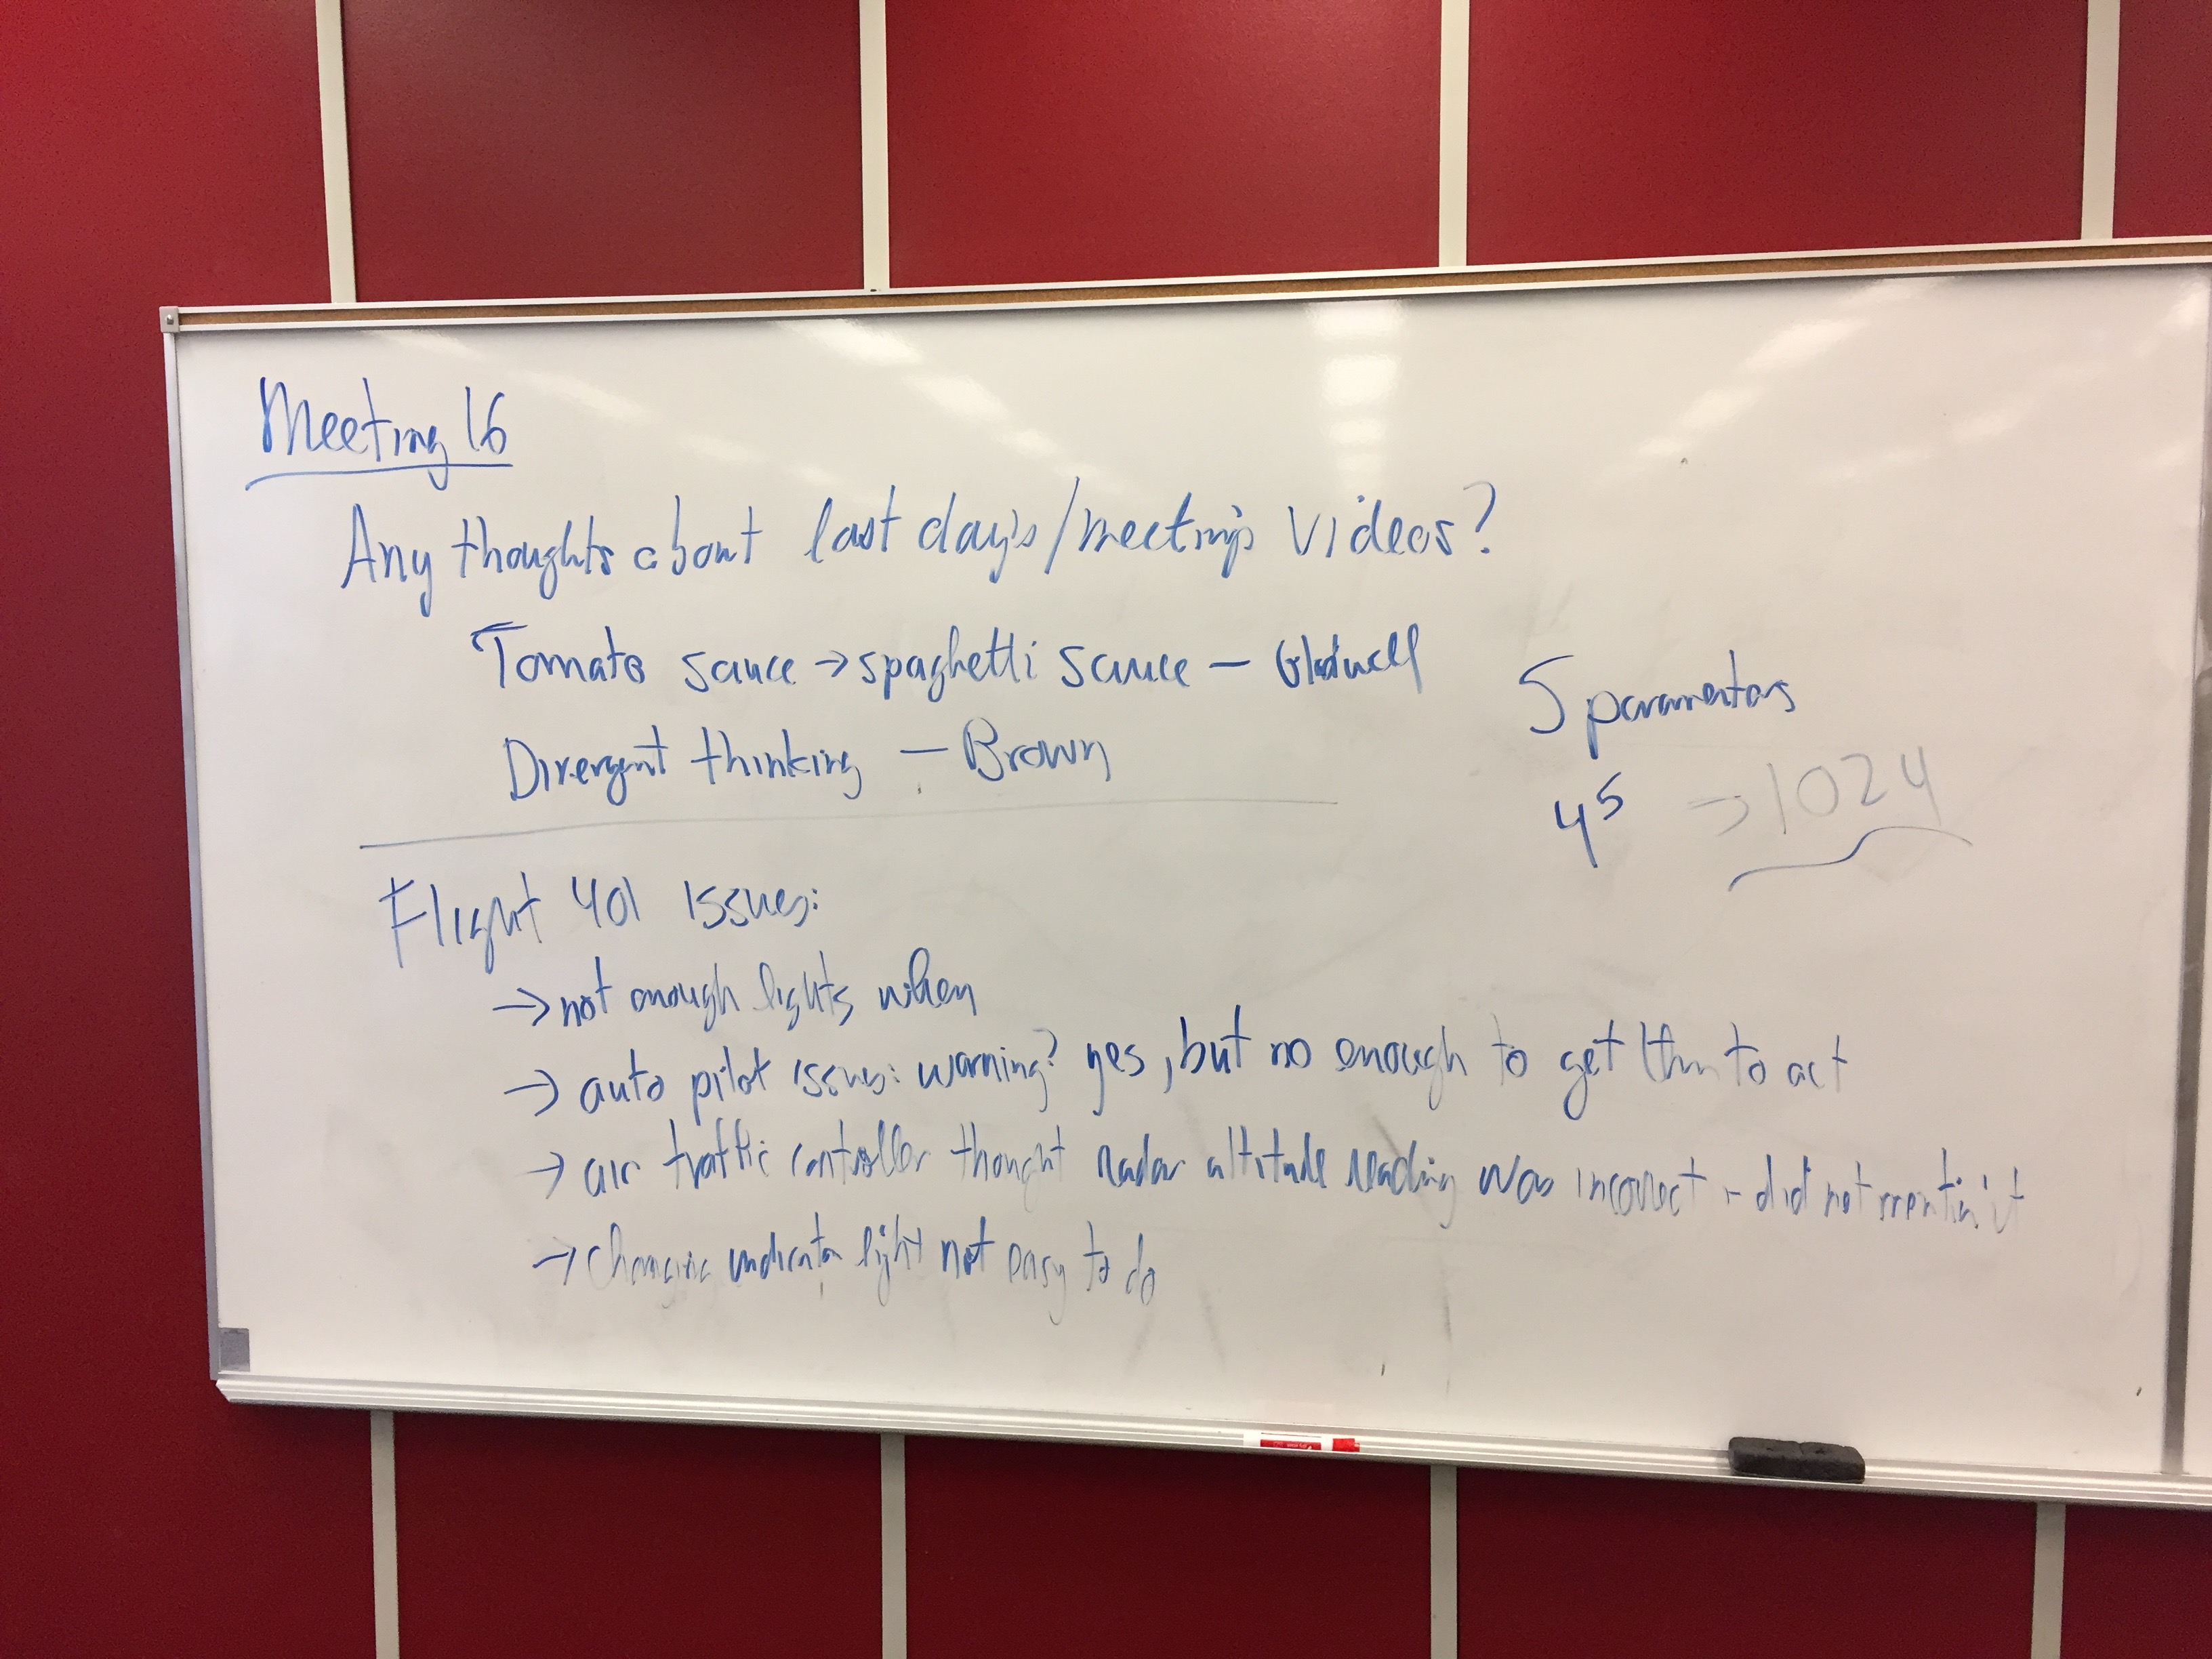 Meeting 16
Any thoughts about last day's/meeting's videos?
Tomato sauce → spaghetti sauce – Gladwell
Divergent thinking – Brown
5 parameters
4⁵ → 1024
Flight 401 issues:
→ not enough lights when
→ auto pilot issues: warning? yes, but no enough to get them to act
→ air traffic controller thought radar altitude reading was incorrect - did not mention it
→ changing indicator light not easy to do